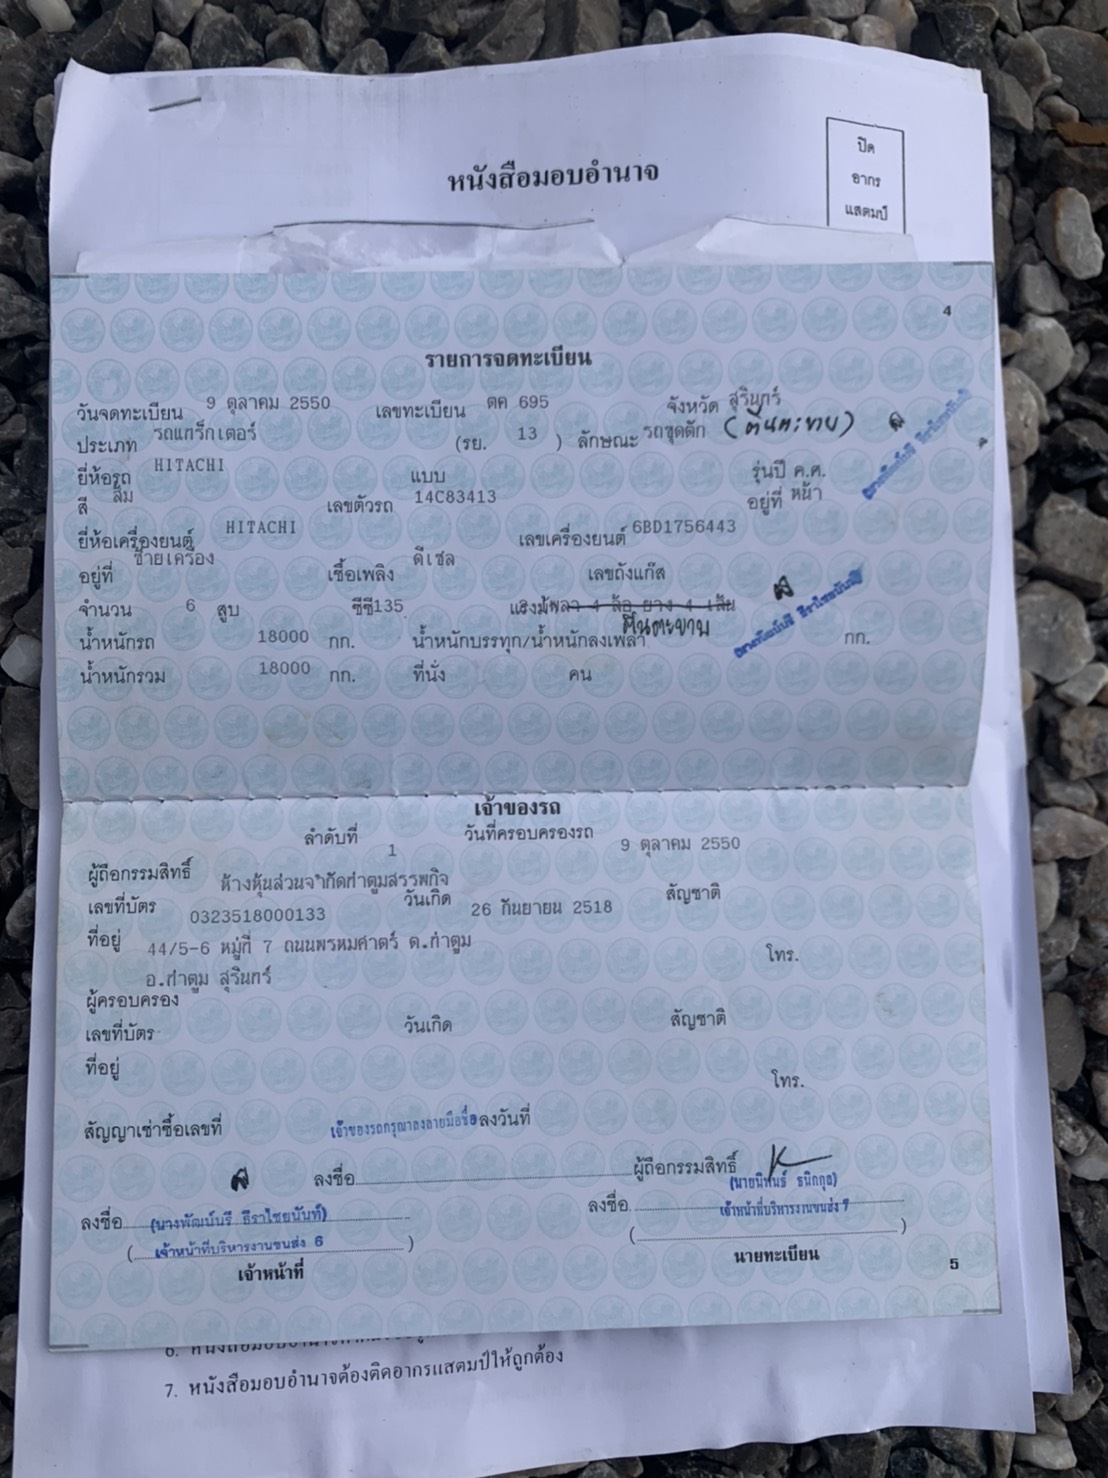 หนังสือมอบอำนาจ
ปิด
อากร
แสตมป์
4
รายการจดทะเบียน
วันจดทะเบียน 9 ตุลาคม 2550 เลขทะเบียน ตค 695 จังหวัด สุรินทร์
ประเภท รถแทร็กเตอร์ (รย. 13 ) ลักษณะ รถขุดตัก (ตีนตะขาบ)
ยี่ห้อรถ HITACHI แบบ รุ่นปี ค.ศ.
สี ส้ม เลขตัวรถ 14C83413 อยู่ที่ หน้า
ยี่ห้อเครื่องยนต์ HITACHI เลขเครื่องยนต์ 6BD1756443
อยู่ที่ ซ้ายเครื่อง เชื้อเพลิง ดีเซล เลขถังแก๊ส
จำนวน 6 สูบ ซีซี 135 แรงม้า เพลา 4 ล้อ ยาง 4 เส้น
ตีนตะขาบ
น้ำหนักรถ 18000 กก. น้ำหนักบรรทุก/น้ำหนักลงเพลา กก.
น้ำหนักรวม 18000 กก. ที่นั่ง คน
เจ้าของรถ
ลำดับที่ 1 วันที่ครอบครองรถ 9 ตุลาคม 2550
ผู้ถือกรรมสิทธิ์ ห้างหุ้นส่วนจำกัดท่าตูมสรรพกิจ
เลขที่บัตร 0323518000133 วันเกิด 26 กันยายน 2518 สัญชาติ
ที่อยู่ 44/5-6 หมู่ที่ 7 ถนนพรหมศาตร์ ต.ท่าตูม โทร.
อ.ท่าตูม สุรินทร์
ผู้ครอบครอง
เลขที่บัตร วันเกิด สัญชาติ
ที่อยู่
โทร.
สัญญาเช่าซื้อเลขที่ เจ้าของรถกรุณาลงลายมือชื่อ ลงวันที่
ลงชื่อ ผู้ถือกรรมสิทธิ์
ลงชื่อ (นางพัฒน์นรี ธีราไชยนันท์) ลงชื่อ (นายนิพนธ์ ธนิกกุล)
( เจ้าหน้าที่บริหารงานขนส่ง 6 ) เจ้าหน้าที่บริหารงานขนส่ง 7
( )
เจ้าหน้าที่ นายทะเบียน
5
7. หนังสือมอบอำนาจต้องติดอากรแสตมป์ให้ถูกต้อง